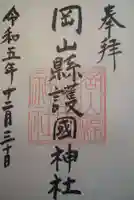 奉拝
岡山縣護國神社
令和五年十二月三十日